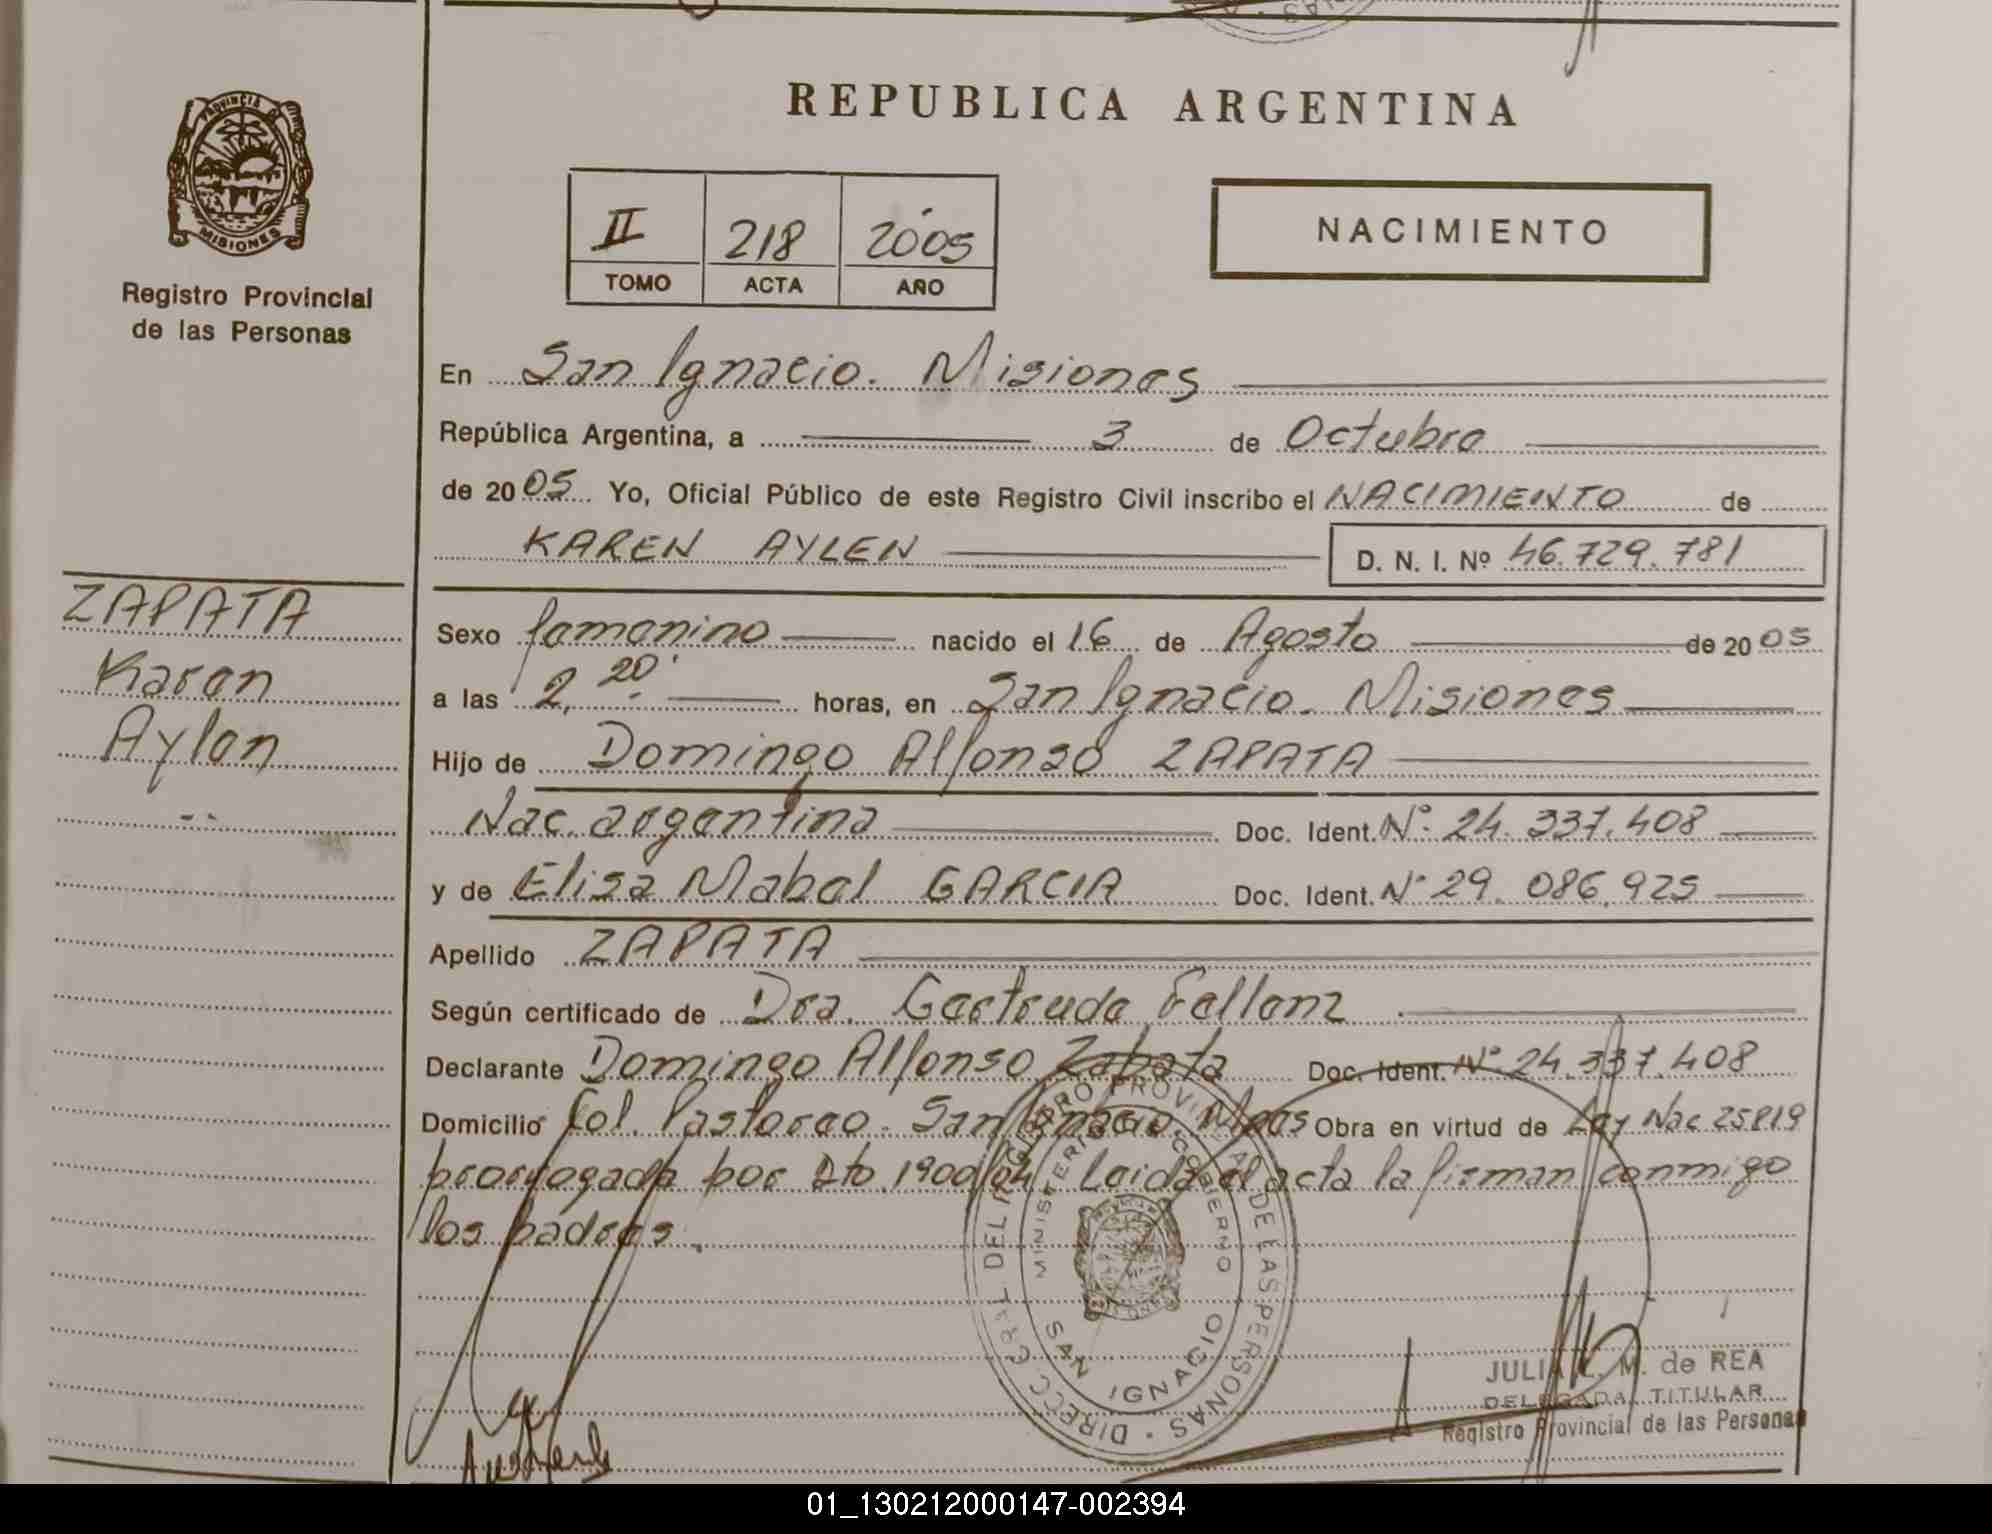 REPUBLICA ARGENTINA
PROVINCIA DE
MISIONES
Registro Provincial
de las Personas
II 218 2005
TOMO ACTA AÑO
NACIMIENTO
En San Ignacio. Misiones
República Argentina, a 3 de Octubre
de 2005 Yo, Oficial Público de este Registro Civil inscribo el NACIMIENTO de
KAREN AYLEN D. N. I. Nº 46.729.781
ZAPATA
Karen
Aylen
Sexo femenino nacido el 16 de Agosto de 2005
a las 2,20' horas, en San Ignacio. Misiones
Hijo de Domingo Alfonso ZAPATA
Nac. argentina Doc. Ident. Nº 24.337.408
y de Elisa Mabel GARCIA Doc. Ident. Nº 29.086.925
Apellido ZAPATA
Según certificado de Dra. Gertrude
Declarante Domingo Alfonso Zapata Doc. Ident. Nº 24.337.408
Domicilio Col. Pastoreo. San Ignacio. Mnes Obra en virtud de Ley Nac 25819
prorrogada por Dto 1900/04. Leida el acta la firman conmigo
los padres.
DIRECC. GRAL. DEL REGISTRO PROVINCIAL DE LAS PERSONAS
MINISTERIO DE GOBIERNO
SAN IGNACIO
JULIA M. de REA
DELEGADA TITULAR
Registro Provincial de las Personas
01_130212000147-002394